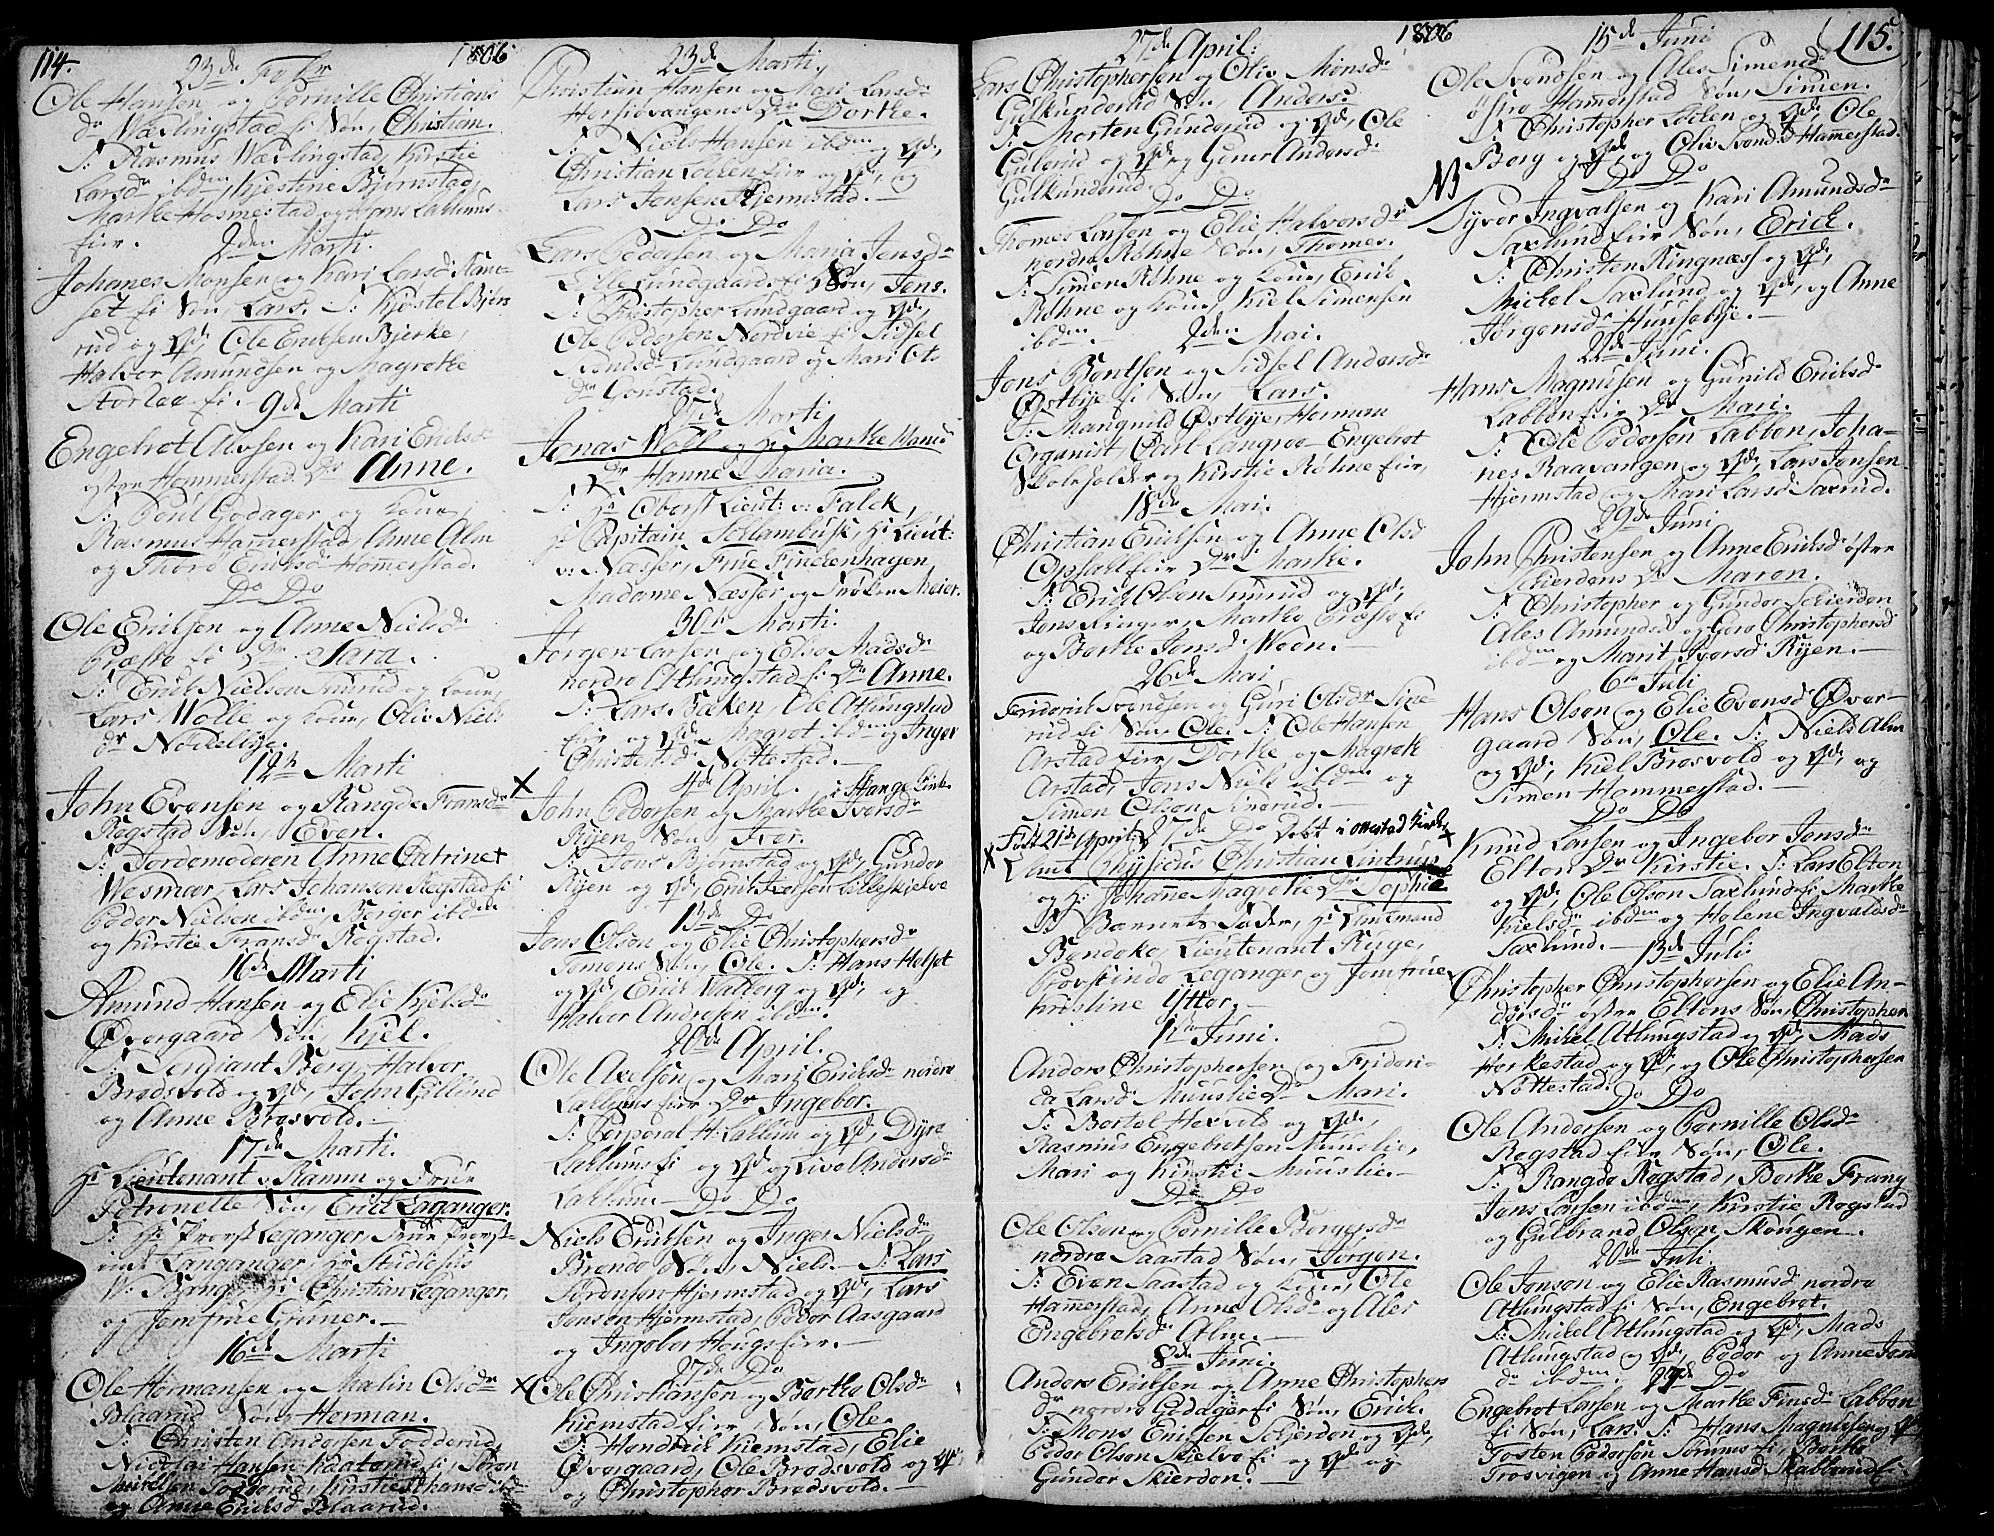 114.
1806
23de Febr
Ole Hansen og Pernille Christians
dr Wæxlingstad fi Søn, Christian.
T: Rasmus Wæxlingstad, Kirstie
Larsdr ibdm, Kjestine Bjørnstad,
Marthe Hosmestad og Hans Laklums
eier.
2den Marti.
Johanes Monsen og Kari Larsd
set fi Søn Lars. T: Kjøstel Bjer
rud og Qd, Ole Erichsen Bjerke,
Halvor Amundsen og Magrethe
fi.
9de Marti
Engebret Alvsen og Kari Ericksdr
østre Hommerstad Dr Anne.
T: Poul Godager og Kone,
Rasmus Hammerstad, Anne Alm
og Thord Ericksd Hommerstad.
Do Do
Ole Ericksen og Anne Nielsd
Præste fi Dr Sara.
T: Erik Nielsen Smerud og Kone,
Lars Wolle og Kone, Oliv Niels
dr Nøckelbye.
12te Marti
John Evensen og Rangde Fransdr
Rogstad Søn, Even.
T: Jordemoderen Anne Catrine
Wesmar, Lars Johansen Rogstad fi
Peder Nielsen ibdm, Berger ibdm
og Kirstie Fransdr Rogstad.
16de Marti
Amund Hansen og Elie Kjelsdr
Øvergaard Søn, Kjel.
T: Sergiant Berg, Halvor
Brødsvold og Qd, John Gillund
og Anne Brøsvold.
17de Marti.
Hr Lieutenant v Ramm og Frue
Petronelle Søn, Erick Leganger.
T: Hr Provst Leganger, Frue Provst-
inde Langanger, Hr Studiosus
Christian Leganger,
og Jomfrue Grüner.
16de Marti
Ole Hermansen og Malin Olsdr
Blaarud Søn, Herman.
T: Christen Andersen Todderud,
Nicolai Hansen fi, Søren
Mickelsen Todderud, Kirstie
og Anne Ericksd Blaarud.
23de Marti
Christian Hansen og Mari Larsd
Horsiøvangens Dr Dorthe.
T: Niels Hansen ibdm og Qd,
Christian Løcken eier og Qd, og
Lars Jensen Hjermstad.
Do Do
Lars Pedersen og Maria Jensdr
Lille Lundgaards fi Søn, Jens.
T: Christopher Lundgaard og Qd,
Ole Pedersen Nordvie fi Sidsel
Lundgaard og Mari Ols
dr Gonstad.
Marti
Jonas Woll og Marthe
Dr Hanne Maria.
T: Hr Oberst Lieut: v: Falck,
Hr Capitain Schlambusk, Hr Lieut:
v: Næsser, Frue Finckenhagen,
Madame Næsser og Frøken Meier.
30te Marti.
Jorgen Larsen og Else Madsdr
nordre Atlungstad fi Dr Anne.
T: Lars Bæken, Ole Atlungstad
eier og Qd, Magret ibdm og Inger
Christensd Nøttestad.
4de April. i Stange Kirke
X
John Pedersen og Marthe Iversdr
Ryen Søn, Iver.
T: Jens Bjørnstad og Qd, Gunder
Ryen og Qd, Erick Iversen
13de Do
Jens Olsen og Elie Christophersdr
Tomens Søn, Ole. T: Hans Helset
og Qd Erick Valberg og Qd, og
Halvor Andresen ibdm.
20de April.
Ole Axelsen og Mari Ericksd nordre
Laklums eier Dr Ingebor.
T: Corporal H: Laklum og Qd, Dyre
Laklums fi og Qd og Live Andersdr
Laklum.
Do Do
Niels Ericksen og Inger Nielsdr
Brende Søn, Niels. T: Lars
Sørensen Hjermstad og Qd, Lars
Jensen Hjermstad, Peder Aasgaard
og Ingebor Haugs eier.
27de Do
X
Ole Christiansen og Berthe Olsdr
Kiemstad eier Søn, Ole.
T: Hendrick Kiemstad, Elie
Øvergaard, Ole Brødsvold og Qd,
og Christopher Brødsvold.
1806
27de April:
Lars Christophersen og Oliv Monsdr
Gulkunderud Søn, Anders.
T: Morten Gunderud og Qd, Ole
Gulerud og Qd og Guner Andersdr
Gulkunderud.
Do Do
Thomes Larsen og Elie Halvorsdr
nordre Røhne Søn, Thomes.
T: Simen Røhne og Kone, Erick
Røhne og Kone, Kiel Simensen
ibdm.
2den Mai.
Jens Bentsen og Sidsel Andersdr
Østbye fi Søn, Lars.
T: Mangnild Østbye, Herman
Organist, Carl Langroe, Engebret
Skoleholder og Kirstie Røhne eier,
18de Mai.
Christian Ericksen og Anne Olsd
Opsahl eier Dr Marthe.
T: Erick Olsen Smerud og Qd,
Jens Ringer, Marthe Præste fi
og Berthe Jensd Ween.
26de Mai,
Friderick Svendsen og Guri Olsdr Sine-
rud fi Søn, Ole. T: Ole Hansen
Arstad eier, Dorthe og Magrete
Arstad, Jens Niels ibdm og
Simen Olsen Sinerud.
X Født 21de April, 27de Do Døbt i Ottestad Kirke X
Amt Physicus Christian Lintrup
og Hr Johanne Magrethe Dr Sophie
T: Barnets Fader, Hr Amtmand
Bendeke, Lieutenant Ruge,
Provstinde Leganger og Jomfrue
Kristine Ytter.
1te Juni.
Anders Christophersen og Frideri-
ca Larsd: Muustie Dr Mari.
T: Bertel Hexvold og Qd,
Rasmus Engebretsen Muustie,
Mari og Kirstie Muustie.
Do Do
Ole Olsen og Pernille Bergersdr
nordre Saastad Søn, Jørgen.
T: Even Saastad og Kone, Ole
Hamerstad, Anne Olsdr og Ales
Engebretsdr Alm.
8de Juni.
Anders Ericksen og Anne Christophers
dr nordre Godager fi Søn, Erick.
T: Mons Ericksen Schjerden og Qd,
Peder Olsen Skielve fi og Qd og
Gunder Skierden.
15de Juni
115.
Ole Svendsen og Ales Simensd
østre Hammerstad Søn, Simen.
T: Christopher Løcken og Qd, Ole
Berg og Qd og Oliv Svendsdr Hamerstad.
Do Do
NB
Syver Ingvalsen og Kari Amundsdr
Saxlund eier Søn, Erick.
T: Christen Ringnæss og Qd,
Mickel Saxlund og Qd, og Anne
Jørgensdr Huusebye.
22de Juni.
Hans Magnusen og Gunild Ericksd
Labben eier Dr Mari.
T: Ole Pedersen Labben, Joha-
nes Raavangen og Qd, Lars Jensen
Hjermstad og Mari Larsd Saxrud.
29de Juni
John Christensen og Anne Ericksd østre
Schierdens Dr Maren.
T: Christopher og Gunder Schierden
Ales Amundsd og Gere Christophersd
ibdm og Marit Iversd Ryen.
6te Juli
Hans Olsen og Elie Evensd Øver-
gaard Søn, Ole. T: Niels Alm
og Qd, Kiel Brøsvold og Qd, og
Simen Hommerstad.
Do Do
Knud Larsen og Ingebor Jensdr
Elton Dr Kirstie. T: Lars Elton
og Qd, Ole Olsen Saxlund fi, Marthe
Kielsdr ibdm og Helene Ingvaldsdr
Saxlund.
13de Juli
Christopher Christophersen og Elie An-
dersdr østre Eltons Søn, Christopher
T: Mickel Atlungstad og Qd, Mads
Horkestad og Qd, og Ole Christophersen
Nøttestad.
Do Do
Ole Andersen og Pernille Olsdr
Rogstad eier Søn, Ole.
T: Rangde Rogstad, Berthe Frans
Jens Larsen ibdm, Kirstie Rogstad
og Gulbrand Olsen Skougen.
20de Juli.
Ole Jensen og Elie Rasmusd nordre
Atlungstad fi Søn, Engebret.
T: Mickel Atlungstad og Qd, Mads
Atlungstad og Qd, Peder og Anne Jens
dr ibdm.
27de Do
Engebret Larsen og Marthe Finsdr Labben
fi Søn, Lars. T: Hans Magnusen og Qd
Tosten Pedersen fi, Berthe
Trosvigen og Anne Hansd Skabberud fi.